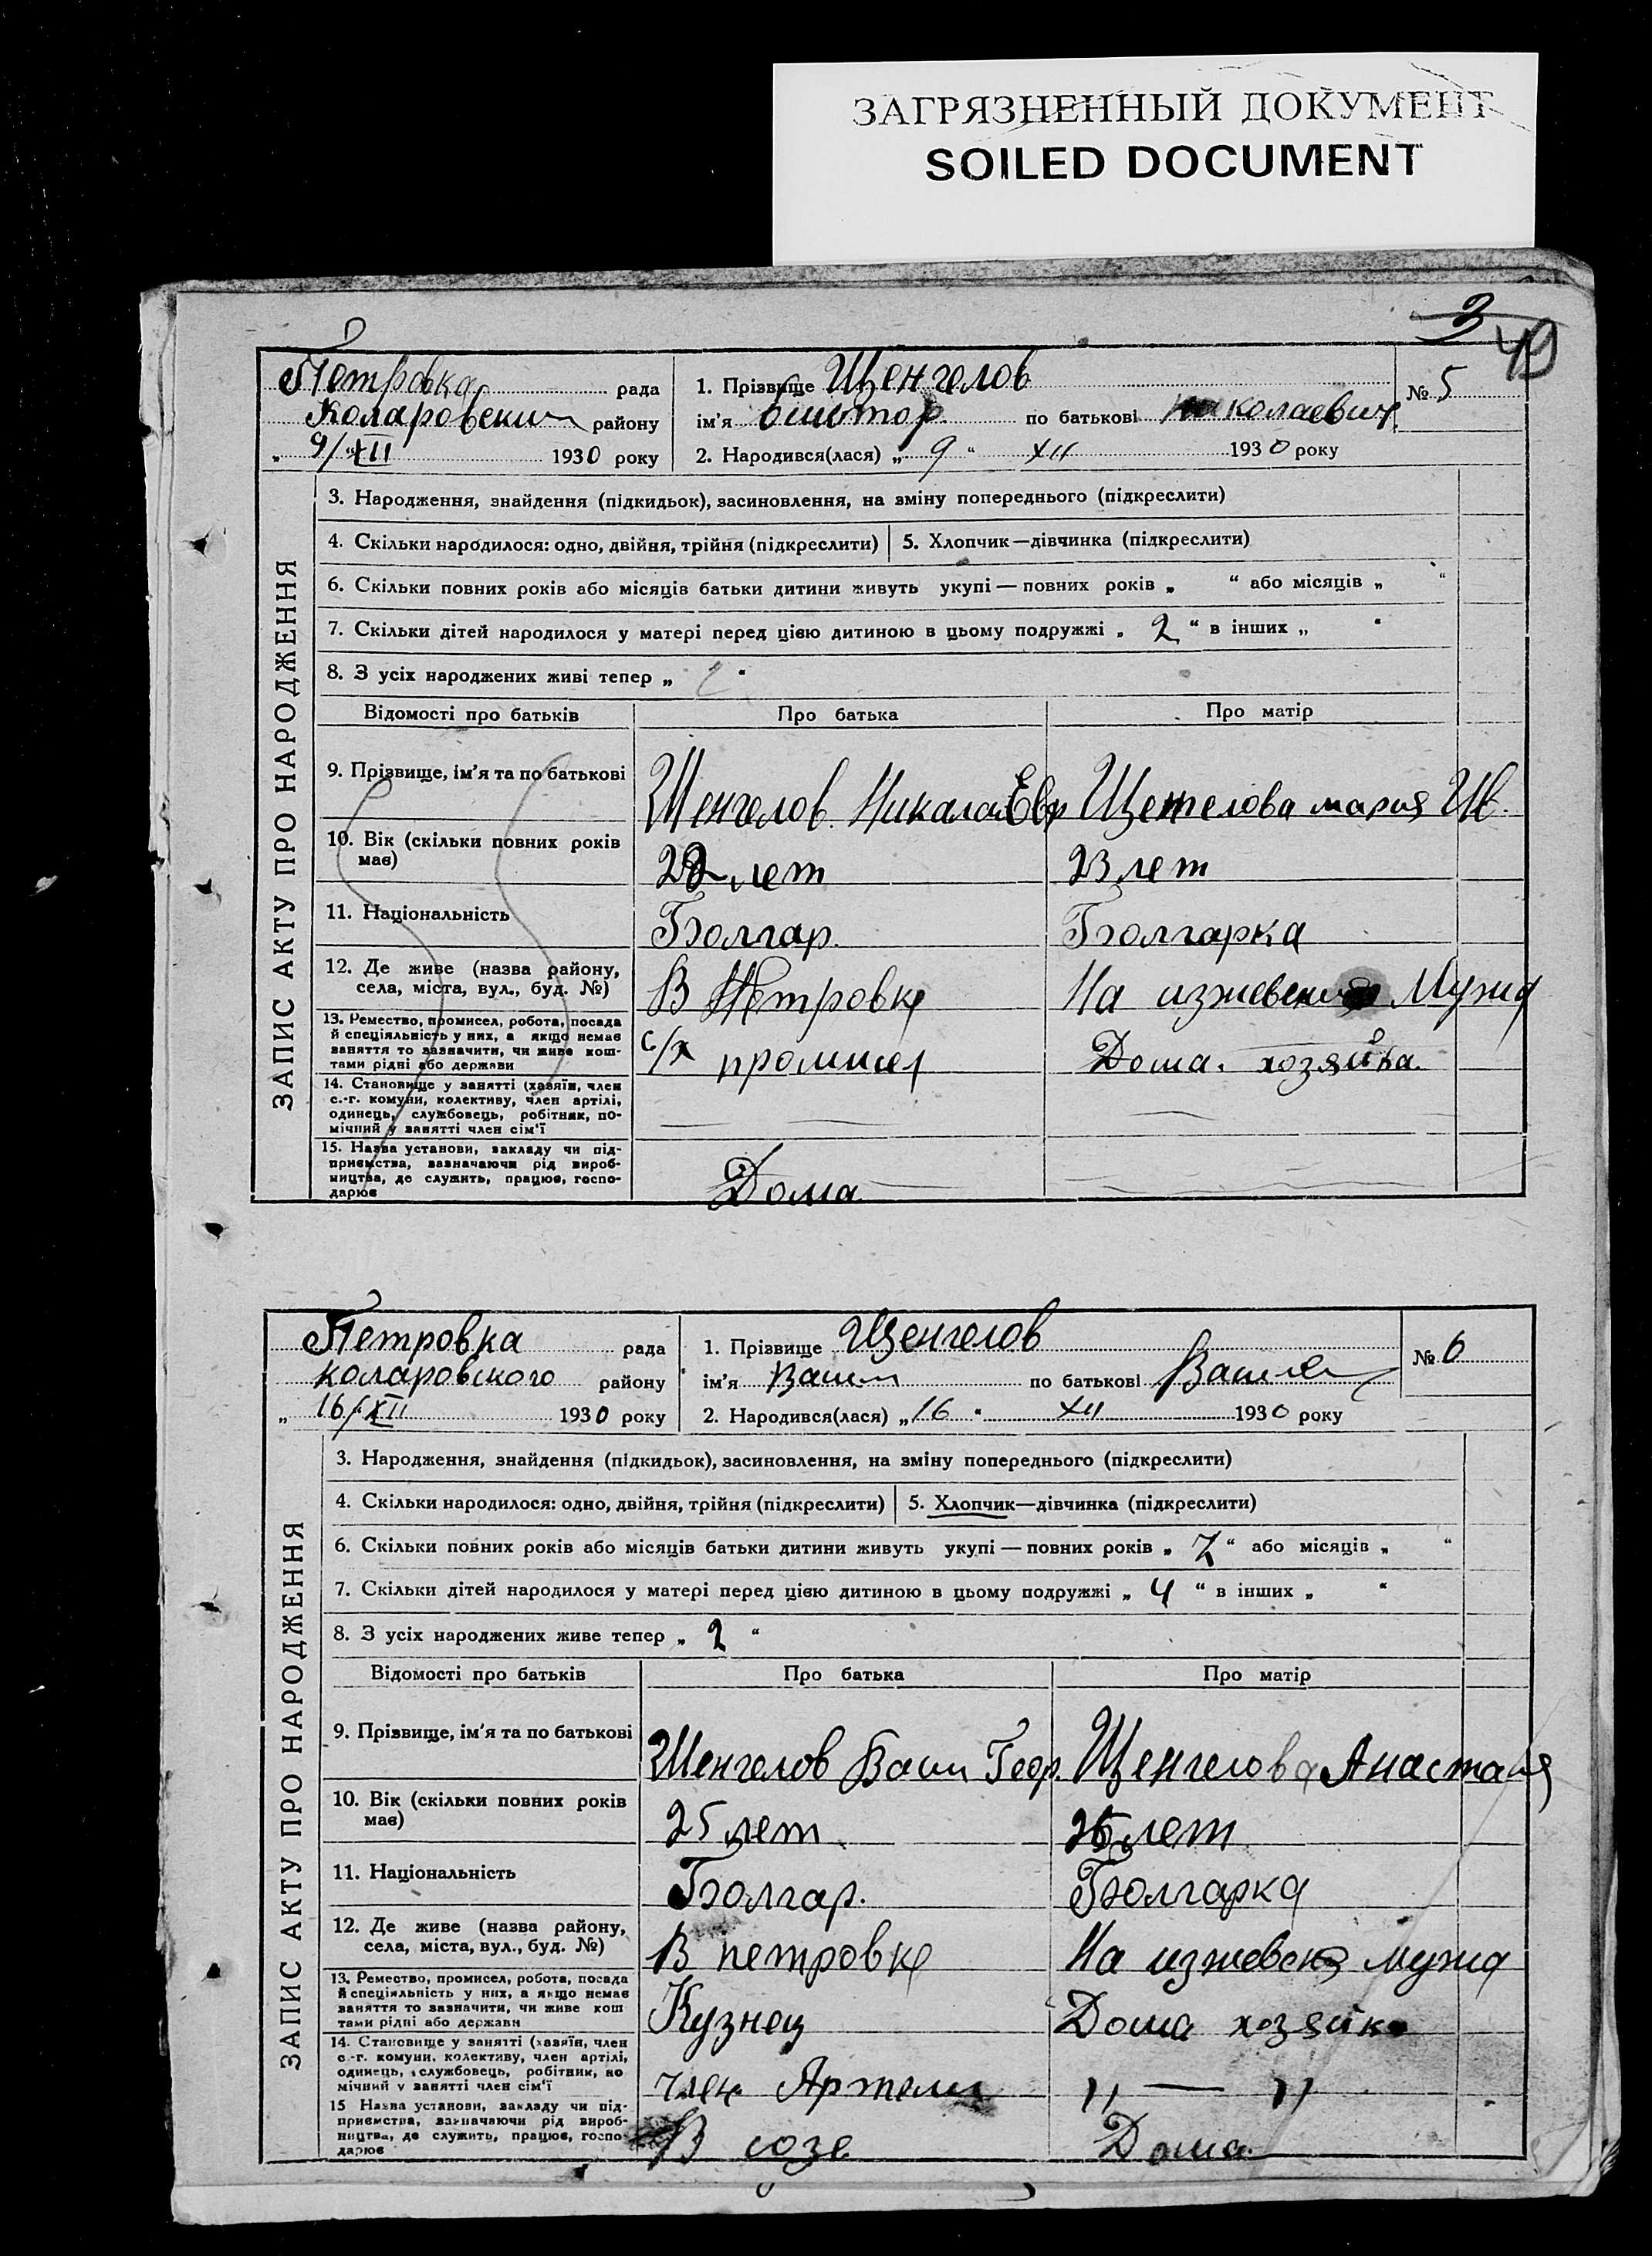 ЗАГРЯЗНЕННЫЙ ДОКУМЕНТ
SOILED DOCUMENT
3
49
Петровка рада
Коларовски району
„ 9/XII 1930 року
1. Прізвище Щенгелов
ім'я по батькові Николаевич
2. Народився(лася) „ 9 “ XII 1930 року
№ 5
ЗАПИС АКТУ ПРО НАРОДЖЕННЯ
3. Народження, знайдення (підкидьок), засиновлення, на зміну попереднього (підкреслити)
4. Скільки народилося: одно, двійня, трійня (підкреслити) 5. Хлопчик—дівчинка (підкреслити)
6. Скільки повних років або місяців батьки дитини живуть укупі — повних років „ “ або місяців „ “
7. Скільки дітей народилося у матері перед цією дитиною в цьому подружжі „ 2 “ в інших „ “
8. З усіх народжених живі тепер „ “
Відомості про батьків Про батька Про матір
9. Прізвище, ім'я та по батькові Щенгелов Никалай Щенгелова мария Ив.
10. Вік (скільки повних років має) 22 лет 23 лет
11. Національність Болгар. Болгарка
12. Де живе (назва району, села, міста, вул., буд. №) В Петровке На изжевении Мужа
13. Ремество, промисел, робота, посада й спеціяльність у них, а якщо немає заняття то зазначити, чи живе коштами рідні або держави с/х промисел Дома. хозяйка.
14. Становище у занятті (хазяїн, член с.-г. комуни, колективу, член артілі, одинець, службовець, робітник, помічний у занятті член сім'ї
15. Назва установи, закладу чи підприємства, зазначаючи рід виробництва, де служить, працює, господарює Дома
Петровка рада
коларовского району
„ 16/XII 1930 року
1. Прізвище Щенгелов
ім'я Васил по батькові Васил
2. Народився(лася) „ 16 “ XII 1930 року
№ 6
ЗАПИС АКТУ ПРО НАРОДЖЕННЯ
3. Народження, знайдення (підкидьок), засиновлення, на зміну попереднього (підкреслити)
4. Скільки народилося: одно, двійня, трійня (підкреслити) 5. Хлопчик—дівчинка (підкреслити)
6. Скільки повних років або місяців батьки дитини живуть укупі — повних років „ 7 “ або місяців „ “
7. Скільки дітей народилося у матері перед цією дитиною в цьому подружжі „ 4 “ в інших „ “
8. З усіх народжених живе тепер „ 2 “
Відомості про батьків Про батька Про матір
9. Прізвище, ім'я та по батькові Щенгелов Васил Геор. Щенгелова Анастаия
10. Вік (скільки повних років має) 25 лет лет
11. Національність Болгар. Болгарка
12. Де живе (назва району, села, міста, вул., буд. №) В петровке На изжевен мужа
13. Ремество, промисел, робота, посада й спеціяльність у них, а якщо немає заняття то зазначити, чи живе коштами рідні або держави Кузнец Дома хозяйка
14. Становище у занятті (хазяїн, член с.-г. комуни, колективу, член артілі, одинець, службовець, робітник, помічний у занятті член сім'ї член Артели „ — „
15 Назва установи, закладу чи підприємства, зазначаючи рід виробництва, де служить, працює, господарює В созе Дома